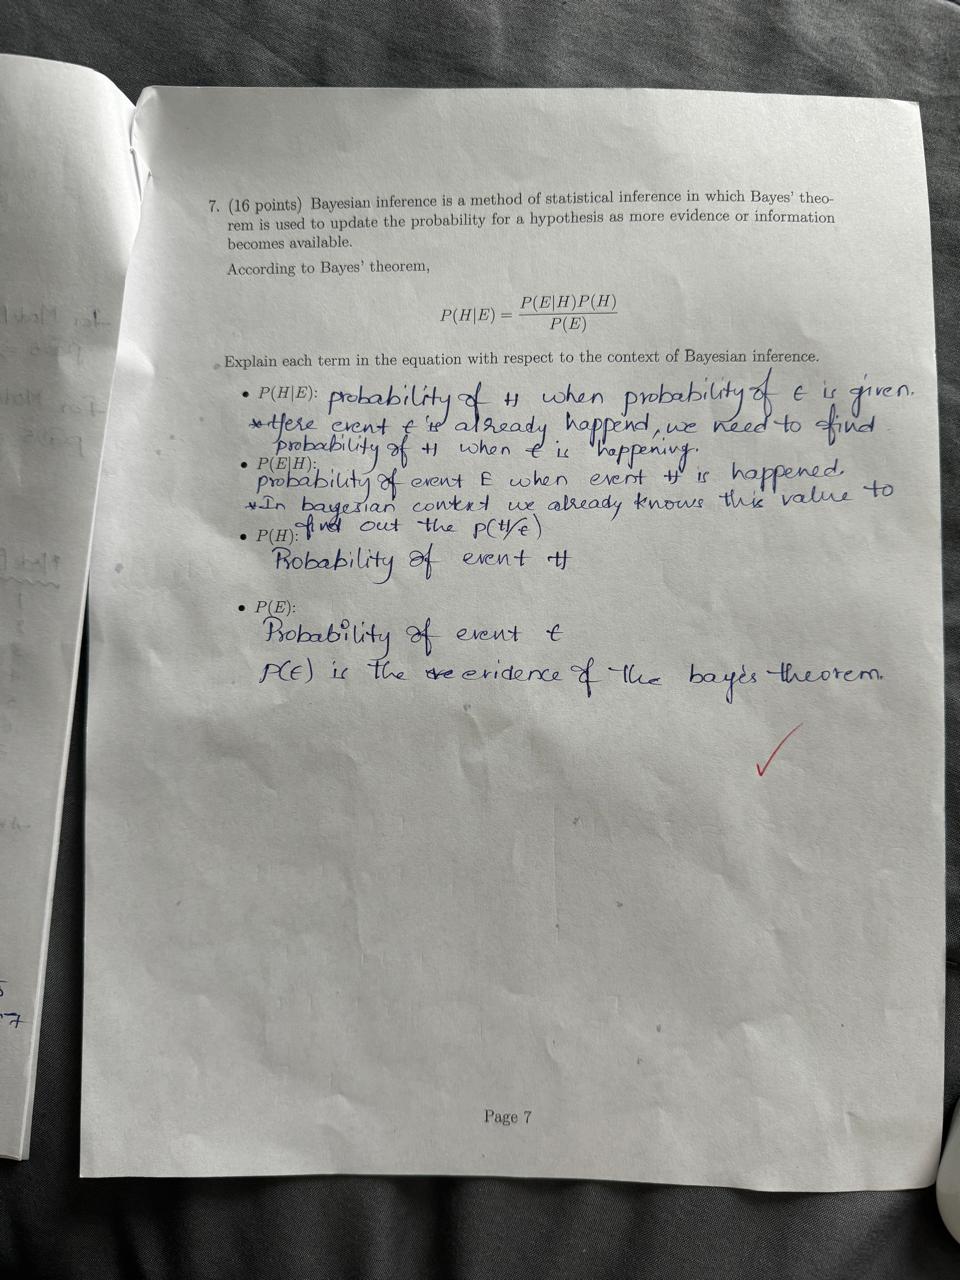 7. (16 points) Bayesian inference is a method of statistical inference in which Bayes' theo-
rem is used to update the probability for a hypothesis as more evidence or information
becomes available.
According to Bayes' theorem,
P(H|E) = P(E|H)P(H) / P(E)
Explain each term in the equation with respect to the context of Bayesian inference.
• P(H|E): probability of H when probability of E is given.
*Here event E is already happend, we need to find
probability of H when E is happening.
• P(E|H):
probability of event E when event H is happened.
*In bayesian context we already knows this value to
find out the P(H/E)
• P(H):
Probability of event H
• P(E):
Probability of event E
P(E) is the evidence of the baye's theorem.
Page 7
7